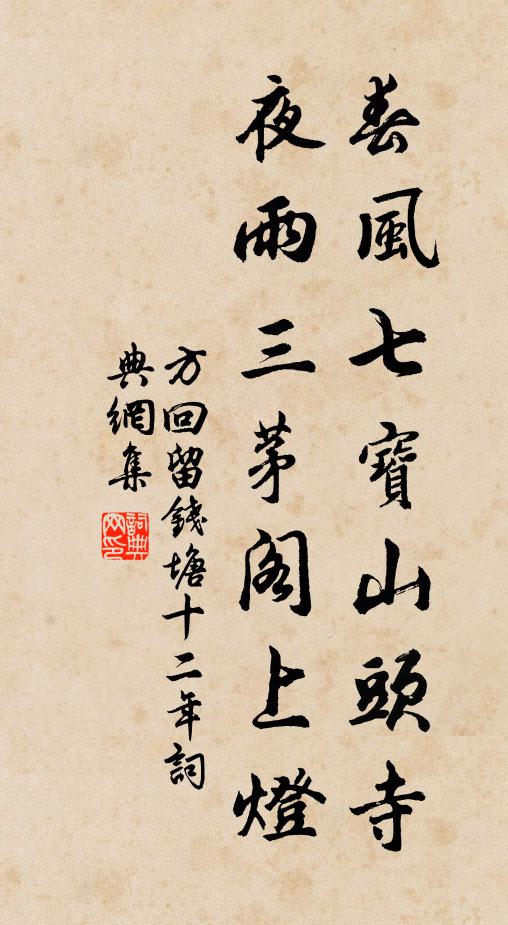 春風七寶山頭寺
夜雨三茅閣上燈
方回留錢塘十二年詞
典網集
詞典
网印